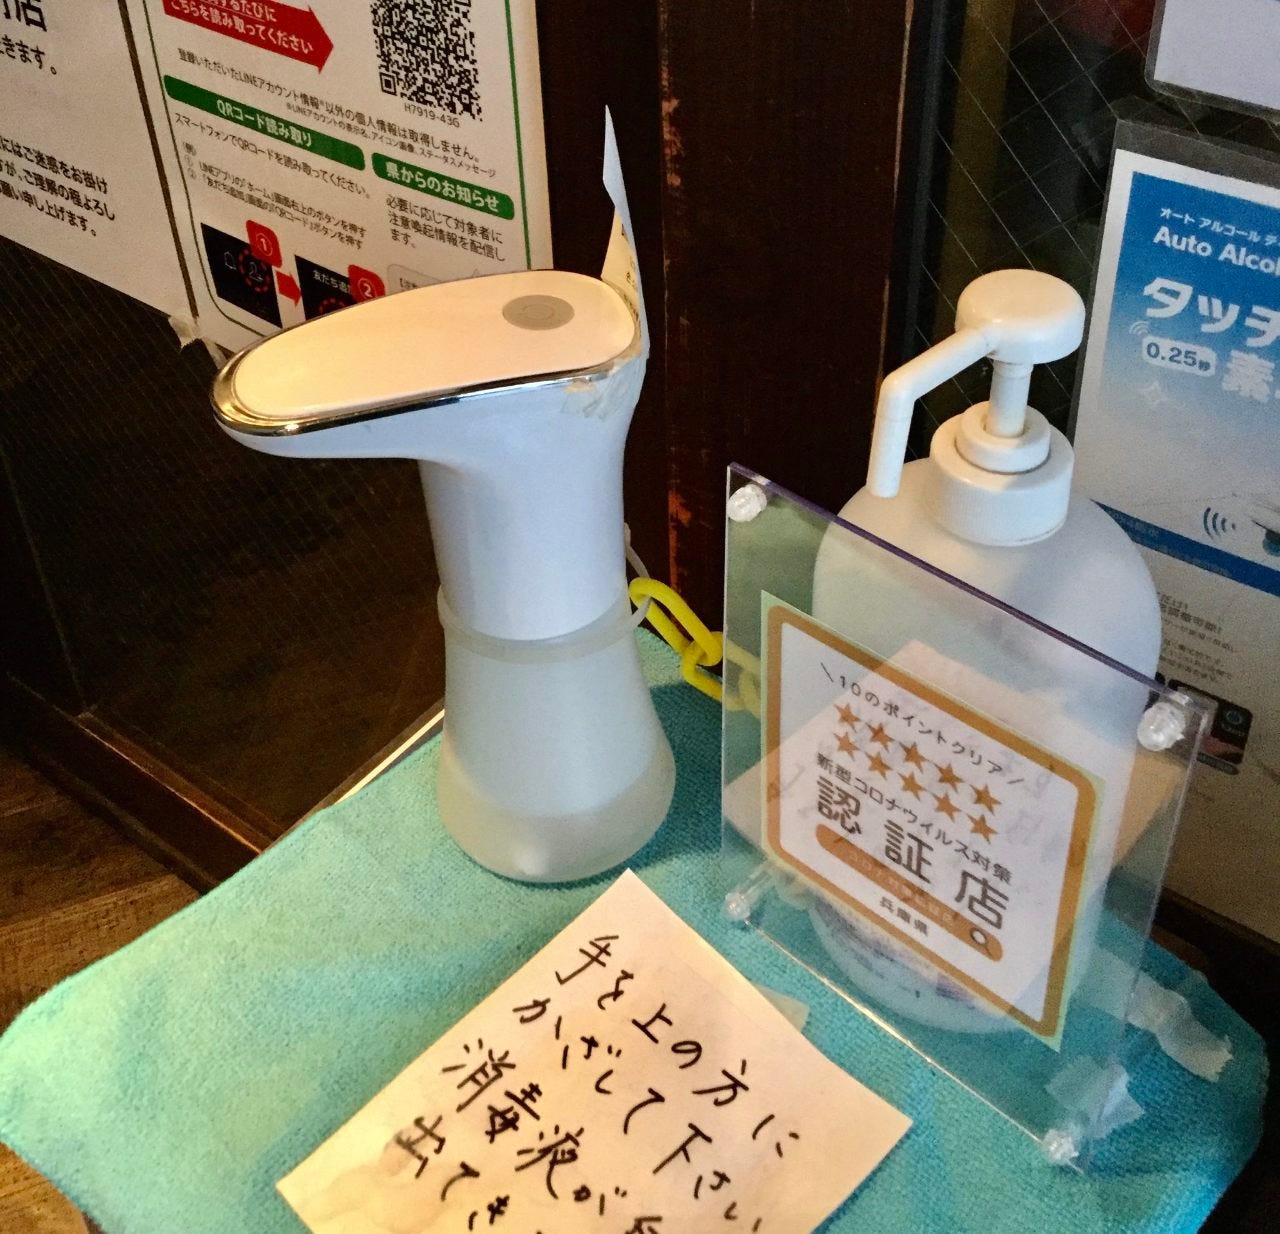 きます。
にはご迷惑をお掛け
すが、ご理解の程よろし
願い申し上げます。
こちらを読み取ってください
H7919-436
登録いただいたLINEアカウント情報※以外の個人情報は取得しません。
※LINEアカウントの表示名、アイコン画像、ステータスメッセージ
QRコード読み取り
スマートフォンでQRコードを読み取ってください。
① LINEアプリの「ホーム」画面右上のボタンを押す
② 「友だち追加」画面の「QRコード」ボタンを押す
①
②
友だち追
県からのお知らせ
必要に応じて対象者に
注意喚起情報を配信し
ます。
オート アルコール
Auto Alcoh
タッチ
0.25秒
素
10のポイントクリア
★★★★★
★★★★★
新型コロナウイルス対策
認証店
兵庫県
手を上の方に
かざして下さい
消毒液が
出てき